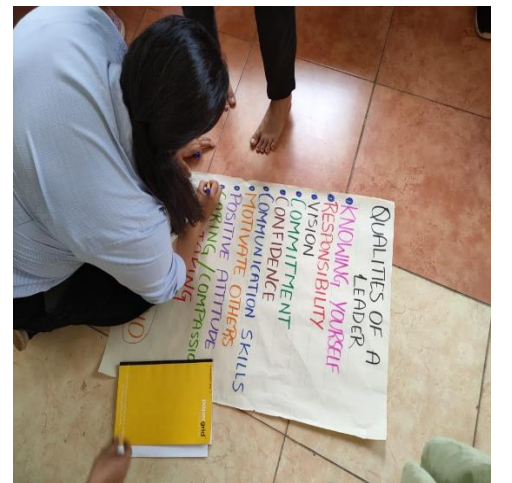 QUALITIES OF A
LEADER
• KNOWING YOURSELF
• RESPONSIBILITY
• VISION
• COMMITMENT
• CONFIDENCE
• COMMUNICATION SKILLS
• MOTIVATE OTHERS
• POSITIVE ATTITUDE